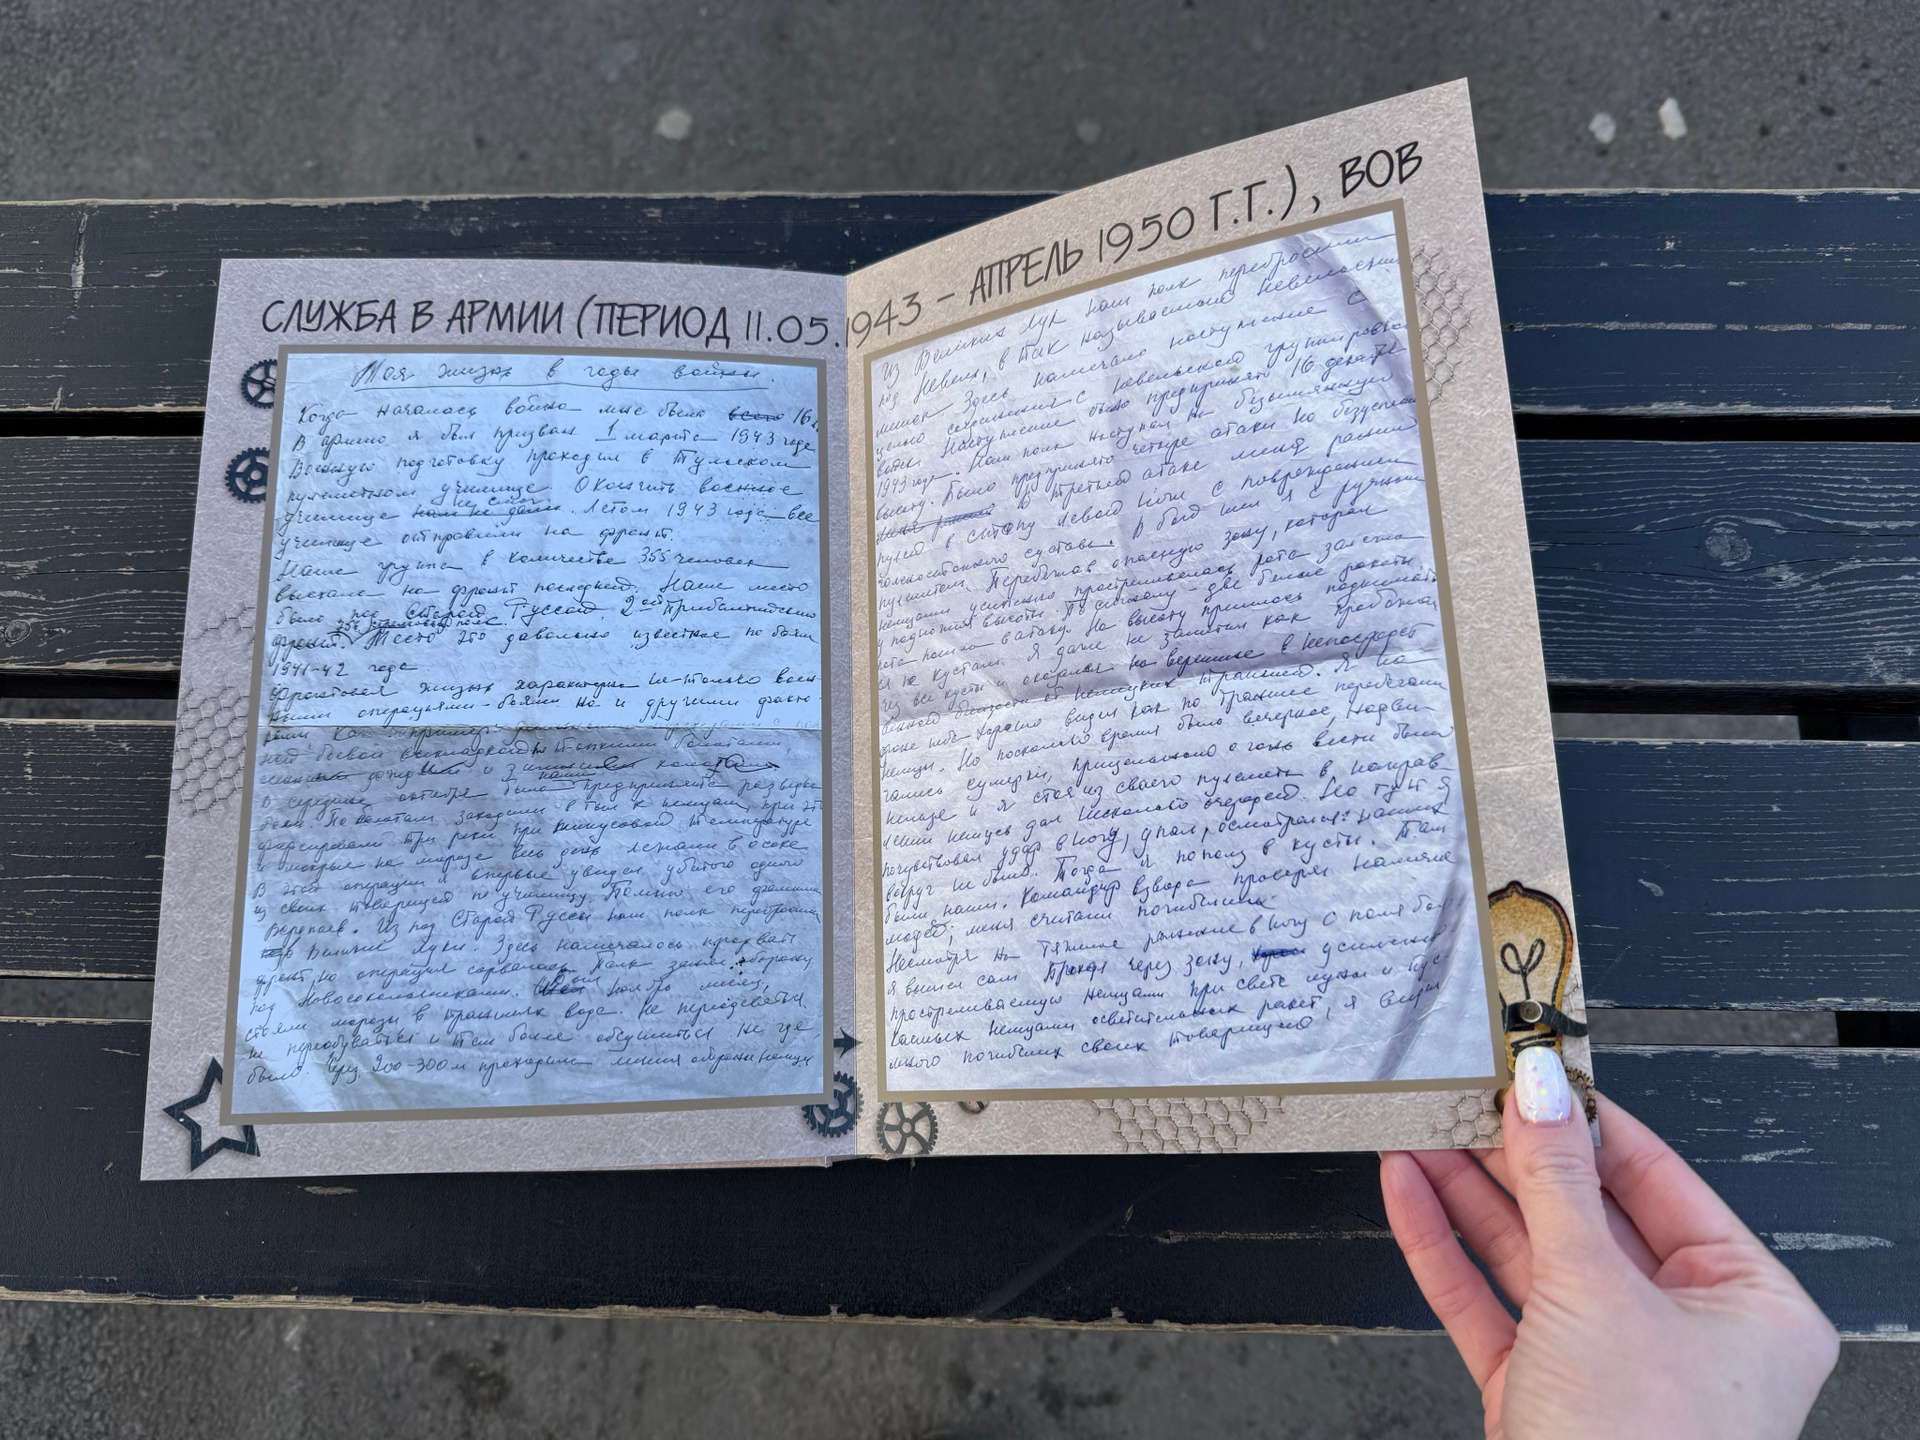 СЛУЖБА В АРМИИ (ПЕРИОД 11.05.1943 - АПРЕЛЬ 1950 Г.Г.), ВОВ
Моя жизнь в годы войны.
Когда началась война мне было всего 16
В армию я был призван 1 марта 1943 года
Военную подготовку проходил в Тульском
пулеметном училище. Окончить военное
училище нам не дали. Летом 1943 года все
училище отправили на фронт.
Наша группа в количестве 355 человек
выехала на фронт последней. Наше место
было под Старой Руссой, 2ой Прибалтийский
фронт. Место это давольно известное по боям
1941-42 года
Фронтовая жизнь характерна не только воен-
ными операциями - боями но и другими факто
рами как например
ной боевой выкладкой по топкими болотами,
дождями и
В середине октября была предпринята разведка
боем. По болотам заходили в тыл к немцам, при эт
форсировали три реки при минусовой температуре
и мокрые на морозе весь день лежали в осоке
В этой операции я впервые увидел убитого одного
из своих товарищей по училищу. Помню его фамилию
Воропаев. Из под Старой Руссы наш полк перебросили
Великие Луки. Здесь намечалось прорвать
фронт, но операция сорвалась. Полк занял оборону
под Новосокольниками. ноябрь месяц,
стояли морозы в траншеях вода. Не переодеваться
не переобуваться и тем более обсушиться не где
было. Через 200-300 м проходила линия обороны немцев
Из Великих Лук наш полк перебросили
под Невель, в так называемый Невельский
мешок Здесь намечалось наступление с
целью соединения с невельской группировкой
войск. Наступление было предпринято 16 декабря
1943 года. Наш полк наступал на безымянную
высоту. Было предпринято четыре атаки но безуспешно
В третьей атаке меня ранило
пулей в стопу левой ноги с повреждением
голеностопного сустава. В бой шел я с ручным
пулеметом. Перебежав опасную зону, которая
немцами усиленно простреливалась рота залегла
у подножия высоты. По сигналу - две белые ракеты
рота пошла в атаку. На высоту пришлось подниматься
по кустам. Я даже не заметил как пробежал
через все кусты и оказался на вершине в непосредст
венной близости от немецких траншей. Я на
фоне неба хорошо видел как по траншее перебегали
немцы. Но поскольку время было вечернее, надви-
гались сумерки, прицельного огонь вести было
нельзя и я стоя из своего пулемета в направ
лении немцев дал несколько очередей. Но тут я
почувствовал удар в ногу, упал, осмотрелся: наших
вокруг не было. Тогда я пополз в кусты. Там
были наши. Командир взвода проверял наличие
людей; меня считали погибшим.
Несмотря на тяжелое ранение в ногу с поля боя
я вышел сам Пройдя через зону, усиленно
простреливаемую немцами при свете луны и пус-
каемых немцами осветительных ракет, я видел
много погибших своих товарищей